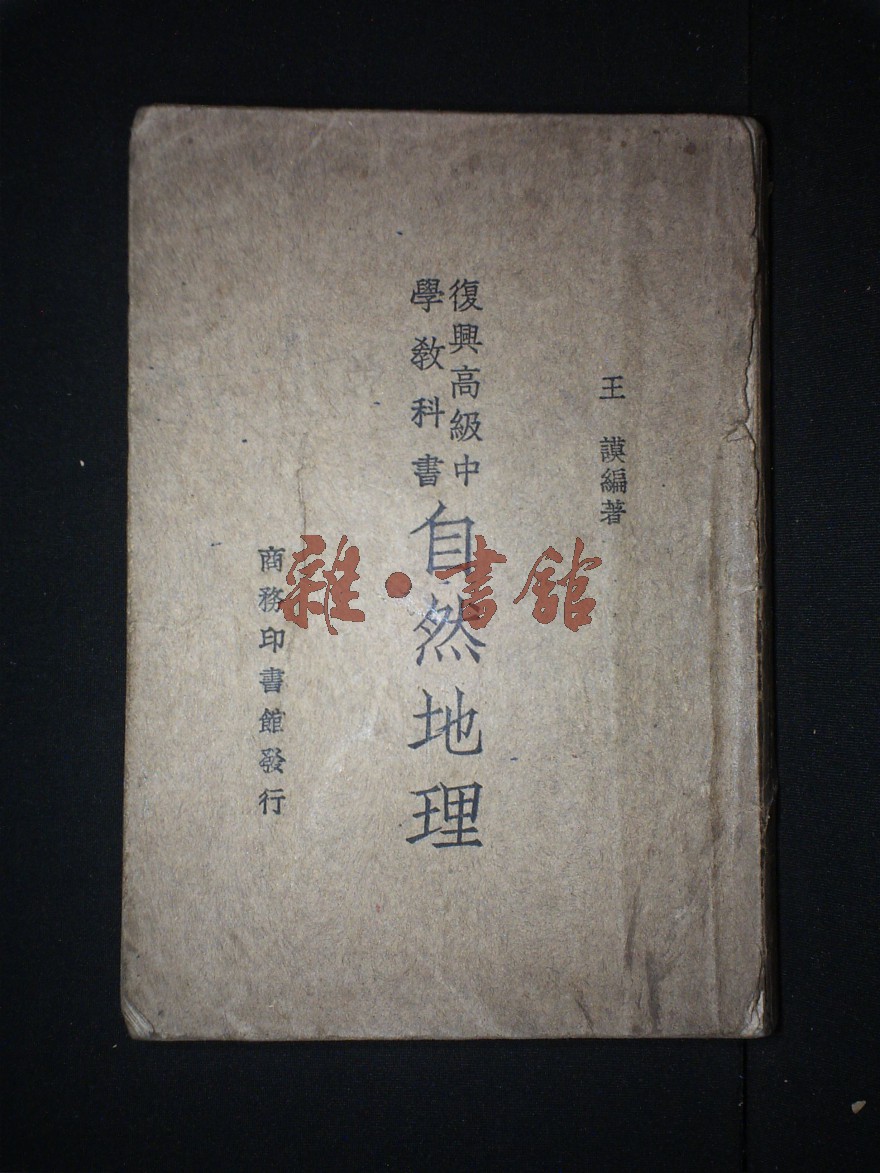 王謨編著
復興高級中
學教科書
自然地理
商務印書館發行
雜·書館